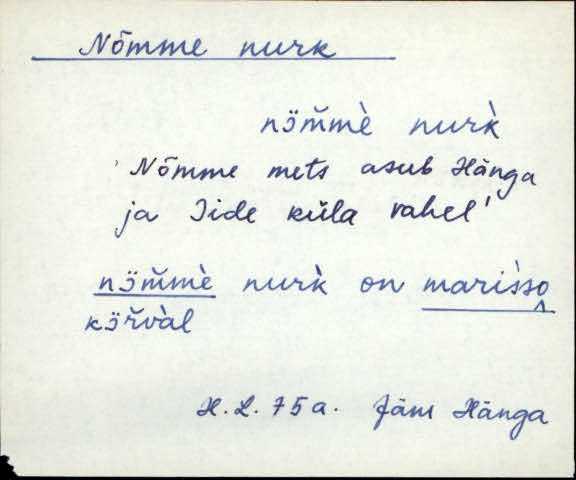 Nõmme nurk
nɔ̈m̆mè nurk̀
'Nõmme mets asub Hänga
ja Iide küla vahel'
nɔ̈m̆mè nurk̀ on mariśso
kɔ̈r̆vàl
H.L. 75a. Jäm Hänga